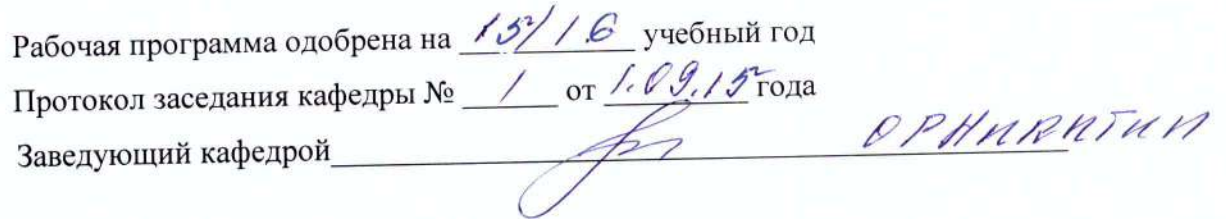 Рабочая программа одобрена на 15/16 учебный год
Протокол заседания кафедры № 1 от 1.09.15 года
Заведующий кафедрой